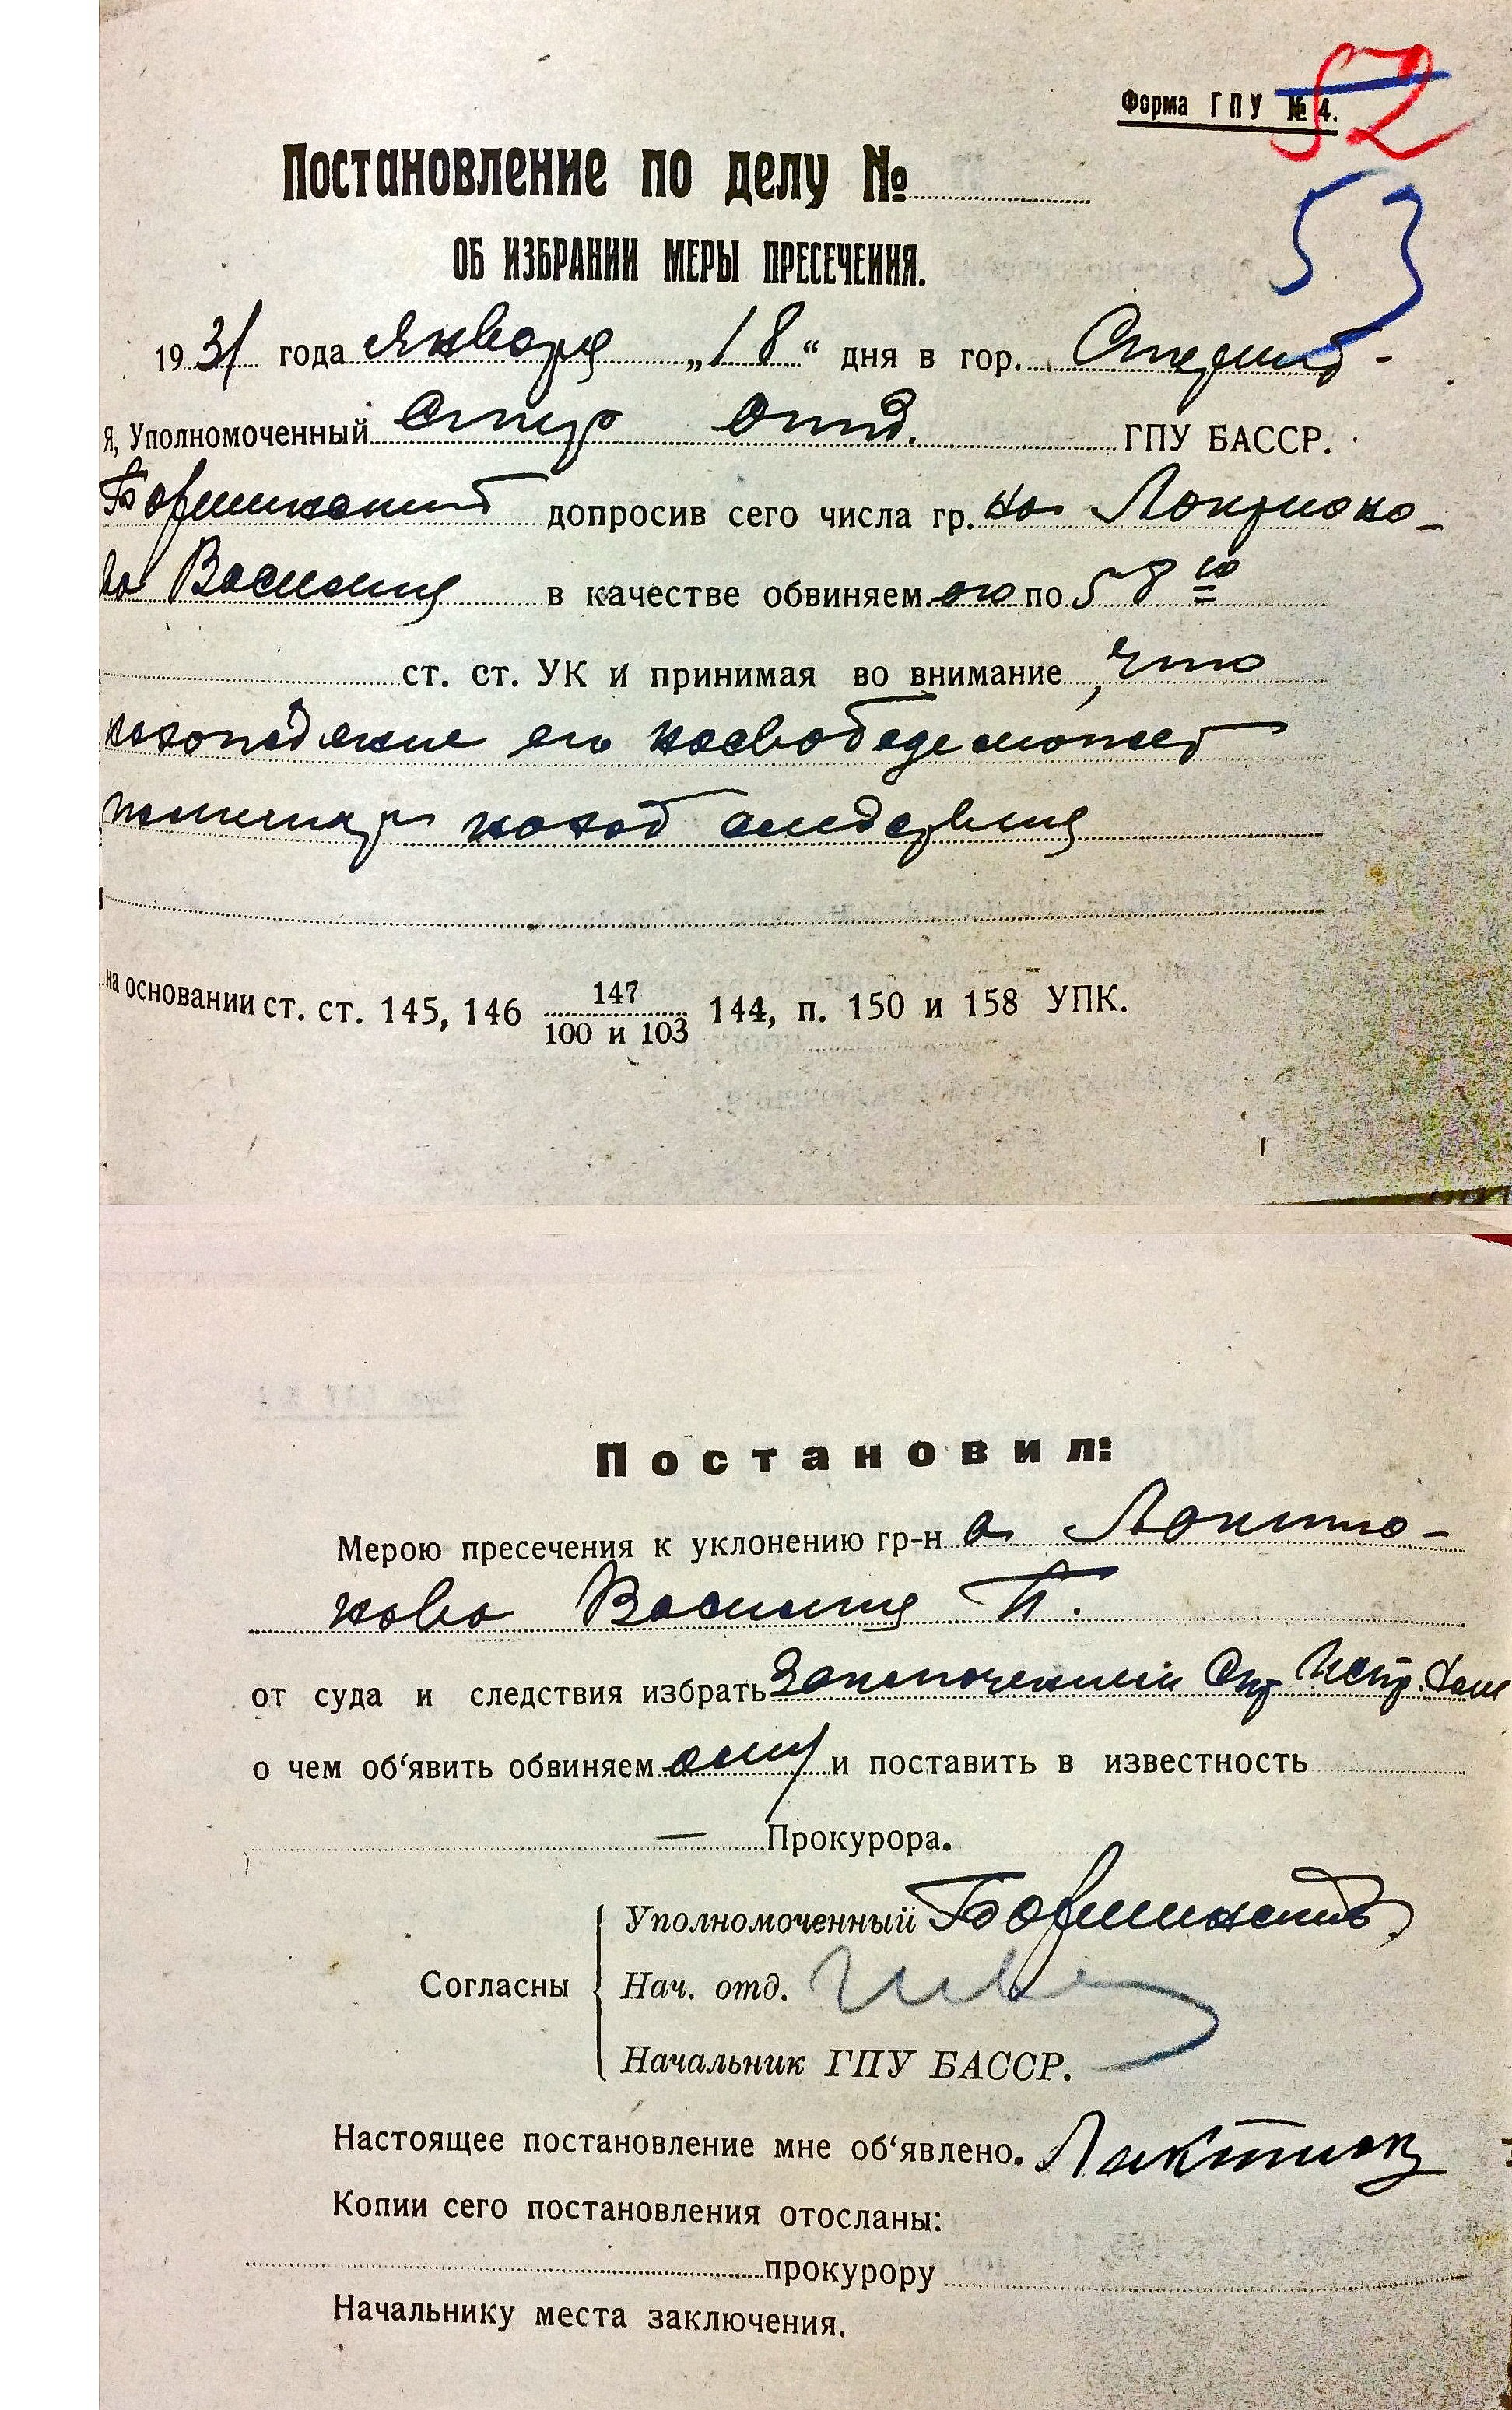 Форма ГПУ № 4.
52
53
Постановление по делу №
ОБ ИЗБРАНИИ МЕРЫ ПРЕСЕЧЕНИЯ.
1931 года Января „18“ дня в гор.
я, Уполномоченный Стер отд. ГПУ БАССР.
допросив сего числа гр. на
ва Василия в качестве обвиняем ого по 58 10
ст. ст. УК и принимая во внимание, что
нахождение его на свободе может
на ход следствия
на основании ст. ст. 145, 146 147/100 и 103 144, п. 150 и 158 УПК.
Постановил:
Мерою пресечения к уклонению гр-н а Локтио-
нова Василия П.
от суда и следствия избрать заключением Стер Испр. Доме
о чем об‘явить обвиняем ому и поставить в известность
— Прокурора.
Согласны
Уполномоченный
Нач. отд.
Начальник ГПУ БАССР.
Настоящее постановление мне об‘явлено. Лактион
Копии сего постановления отосланы:
прокурору
Начальнику места заключения.